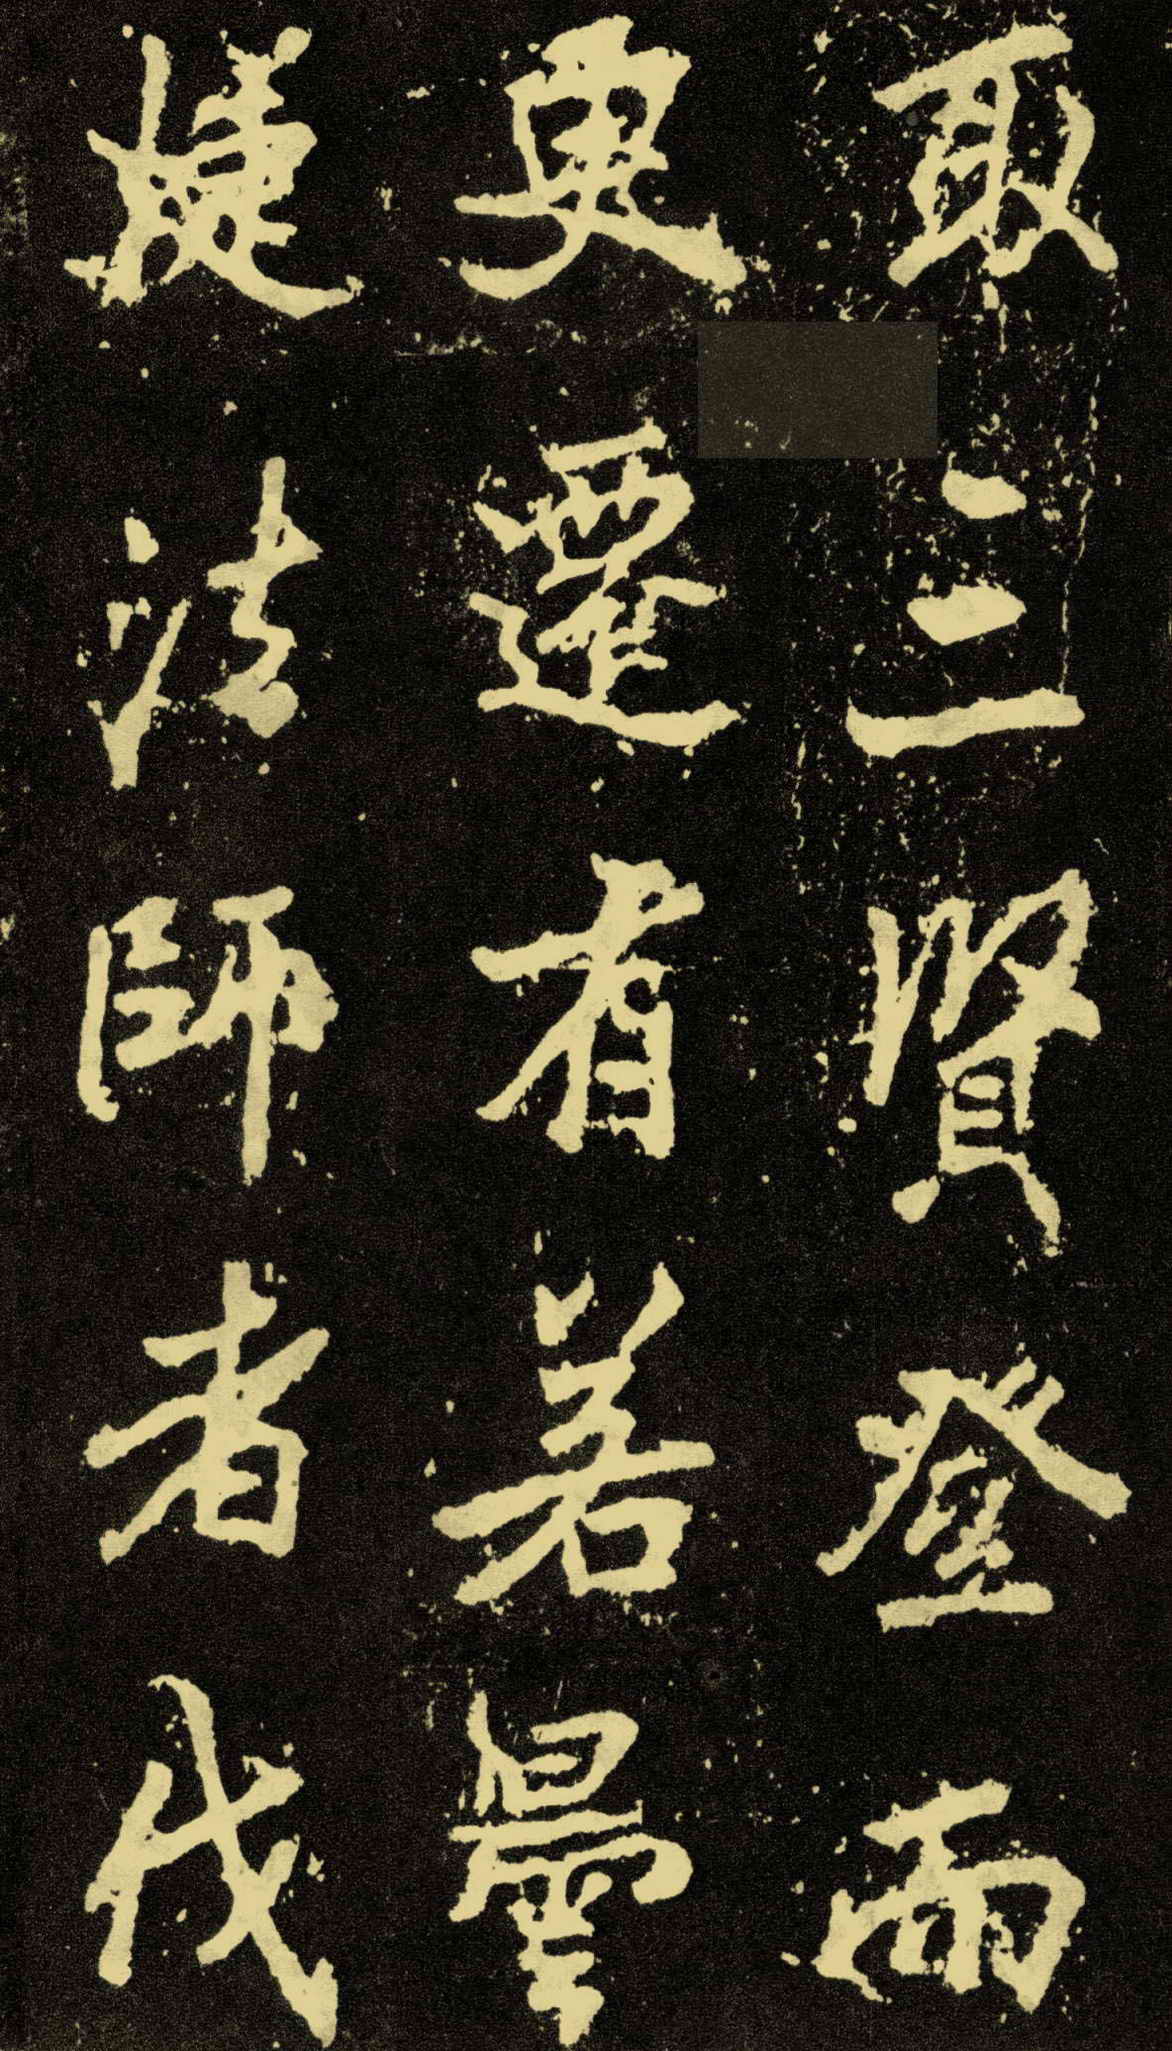 取三賢登而
更遷者若曇
捷法師者伐